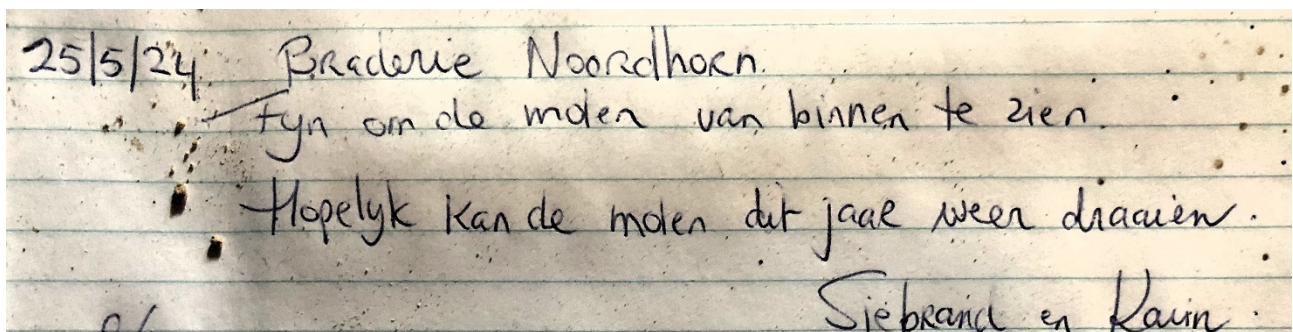 25/5/24 Braderie Noordhorn.
Fyn om de molen van binnen te zien.
Hopelyk kan de molen dit jaar weer draaien.
Siebrand en Karin.